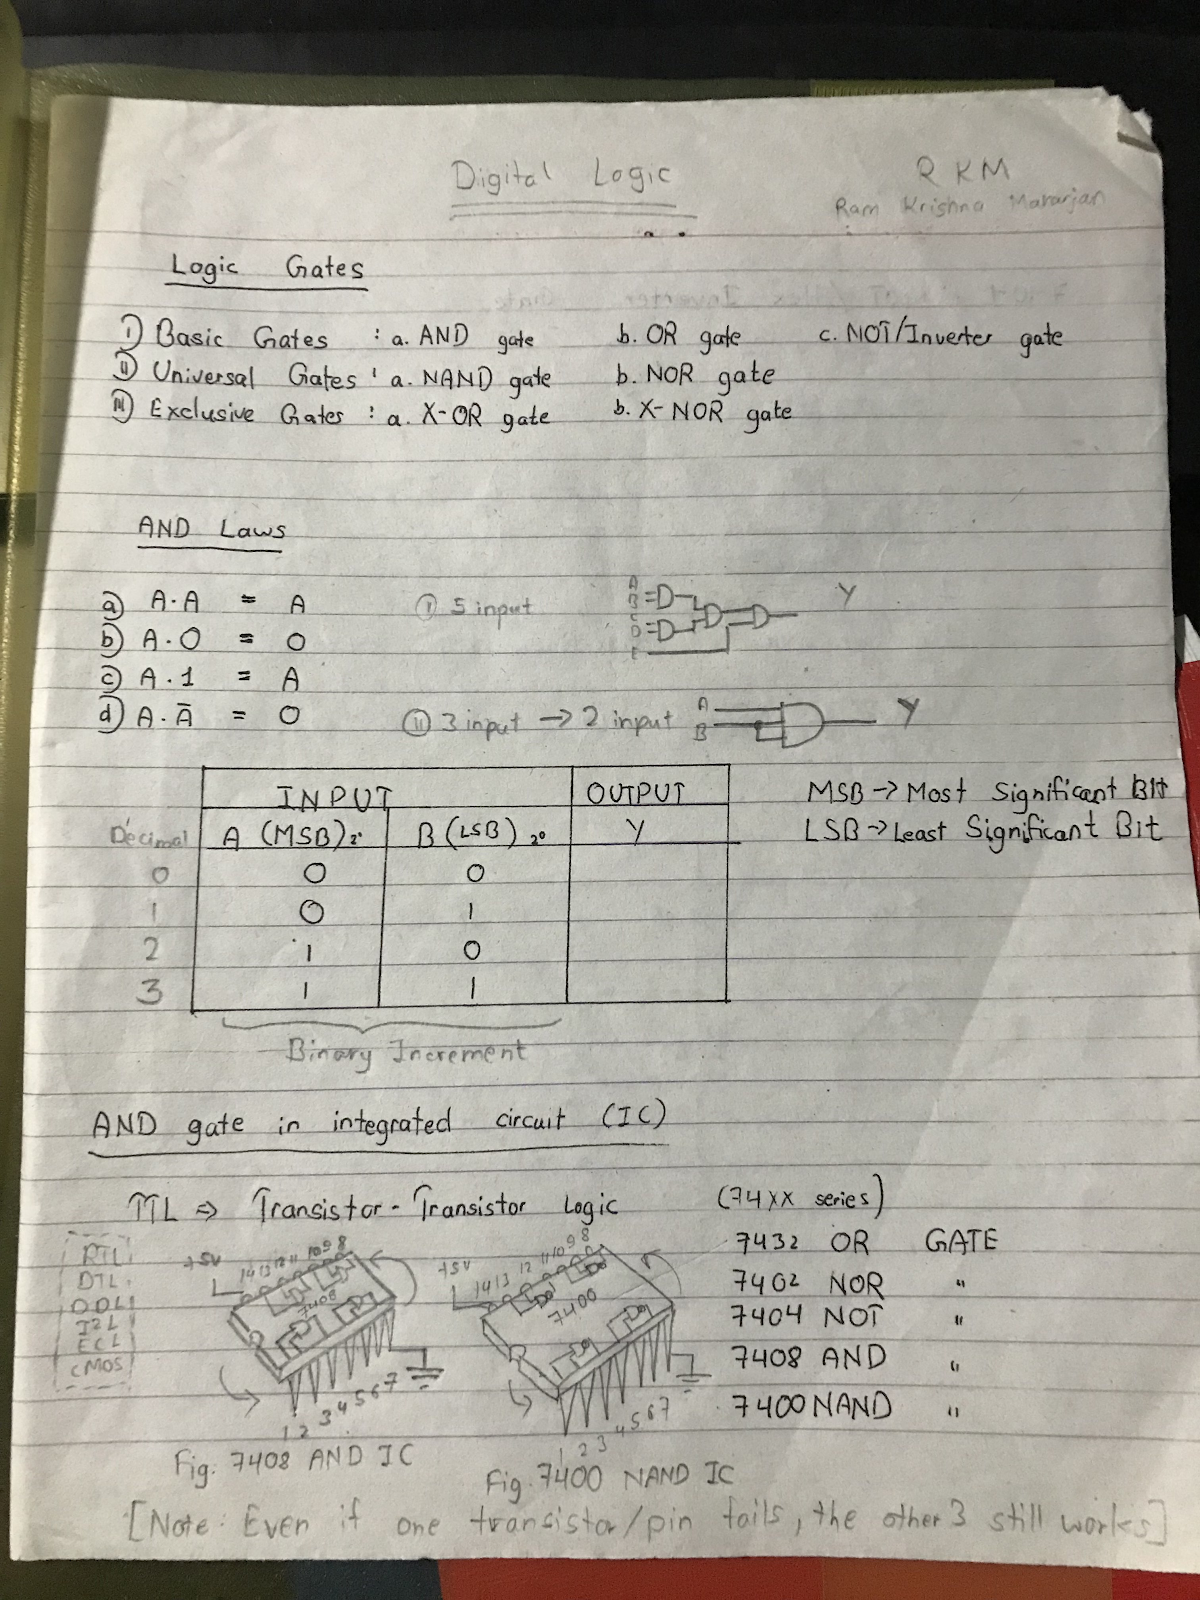 Digital Logic
RKM
Ram Krishna Mararjan
Logic Gates
i) Basic Gates : a. AND gate b. OR gate c. NOT/Inverter gate
ii) Universal Gates : a. NAND gate b. NOR gate
iii) Exclusive Gates : a. X-OR gate b. X-NOR gate
AND Laws
a) A.A = A
b) A.0 = 0
c) A.1 = A
d) A.Ā = 0
i) 5 input
A
B
C
D
E
Y
ii) 3 input → 2 input
A
B
Y
INPUT OUTPUT
Decimal A (MSB) 2¹ B (LSB) 2⁰ Y
0 0 0
1 0 1
2 1 0
3 1 1
Binary Increment
MSB → Most Significant Bit
LSB → Least Significant Bit
AND gate in integrated circuit (IC)
TTL ⇒ Transistor-Transistor Logic
(74XX series)
RTL
DTL
I2L
ECL
CMOS
+5V
14 13 12 11 10 9 8
7408
1 2 3 4 5 6 7
Fig. 7408 AND IC
+5V
14 13 12 11 10 9 8
7400
1 2 3 4 5 6 7
Fig. 7400 NAND IC
7432 OR GATE
7402 NOR "
7404 NOT "
7408 AND "
7400 NAND "
[Note: Even if one transistor/pin fails, the other 3 still works]